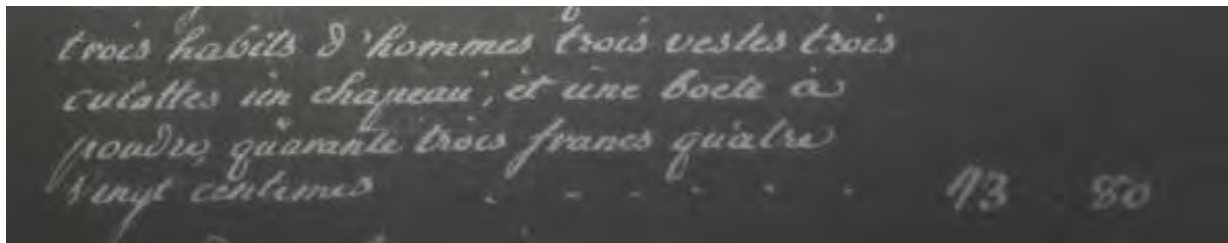 trois habits d'hommes trois vestes trois
culottes un chapeau, et une boete à
poudre, quarante trois francs quatre
vingt centimes . . . . . . 43 80